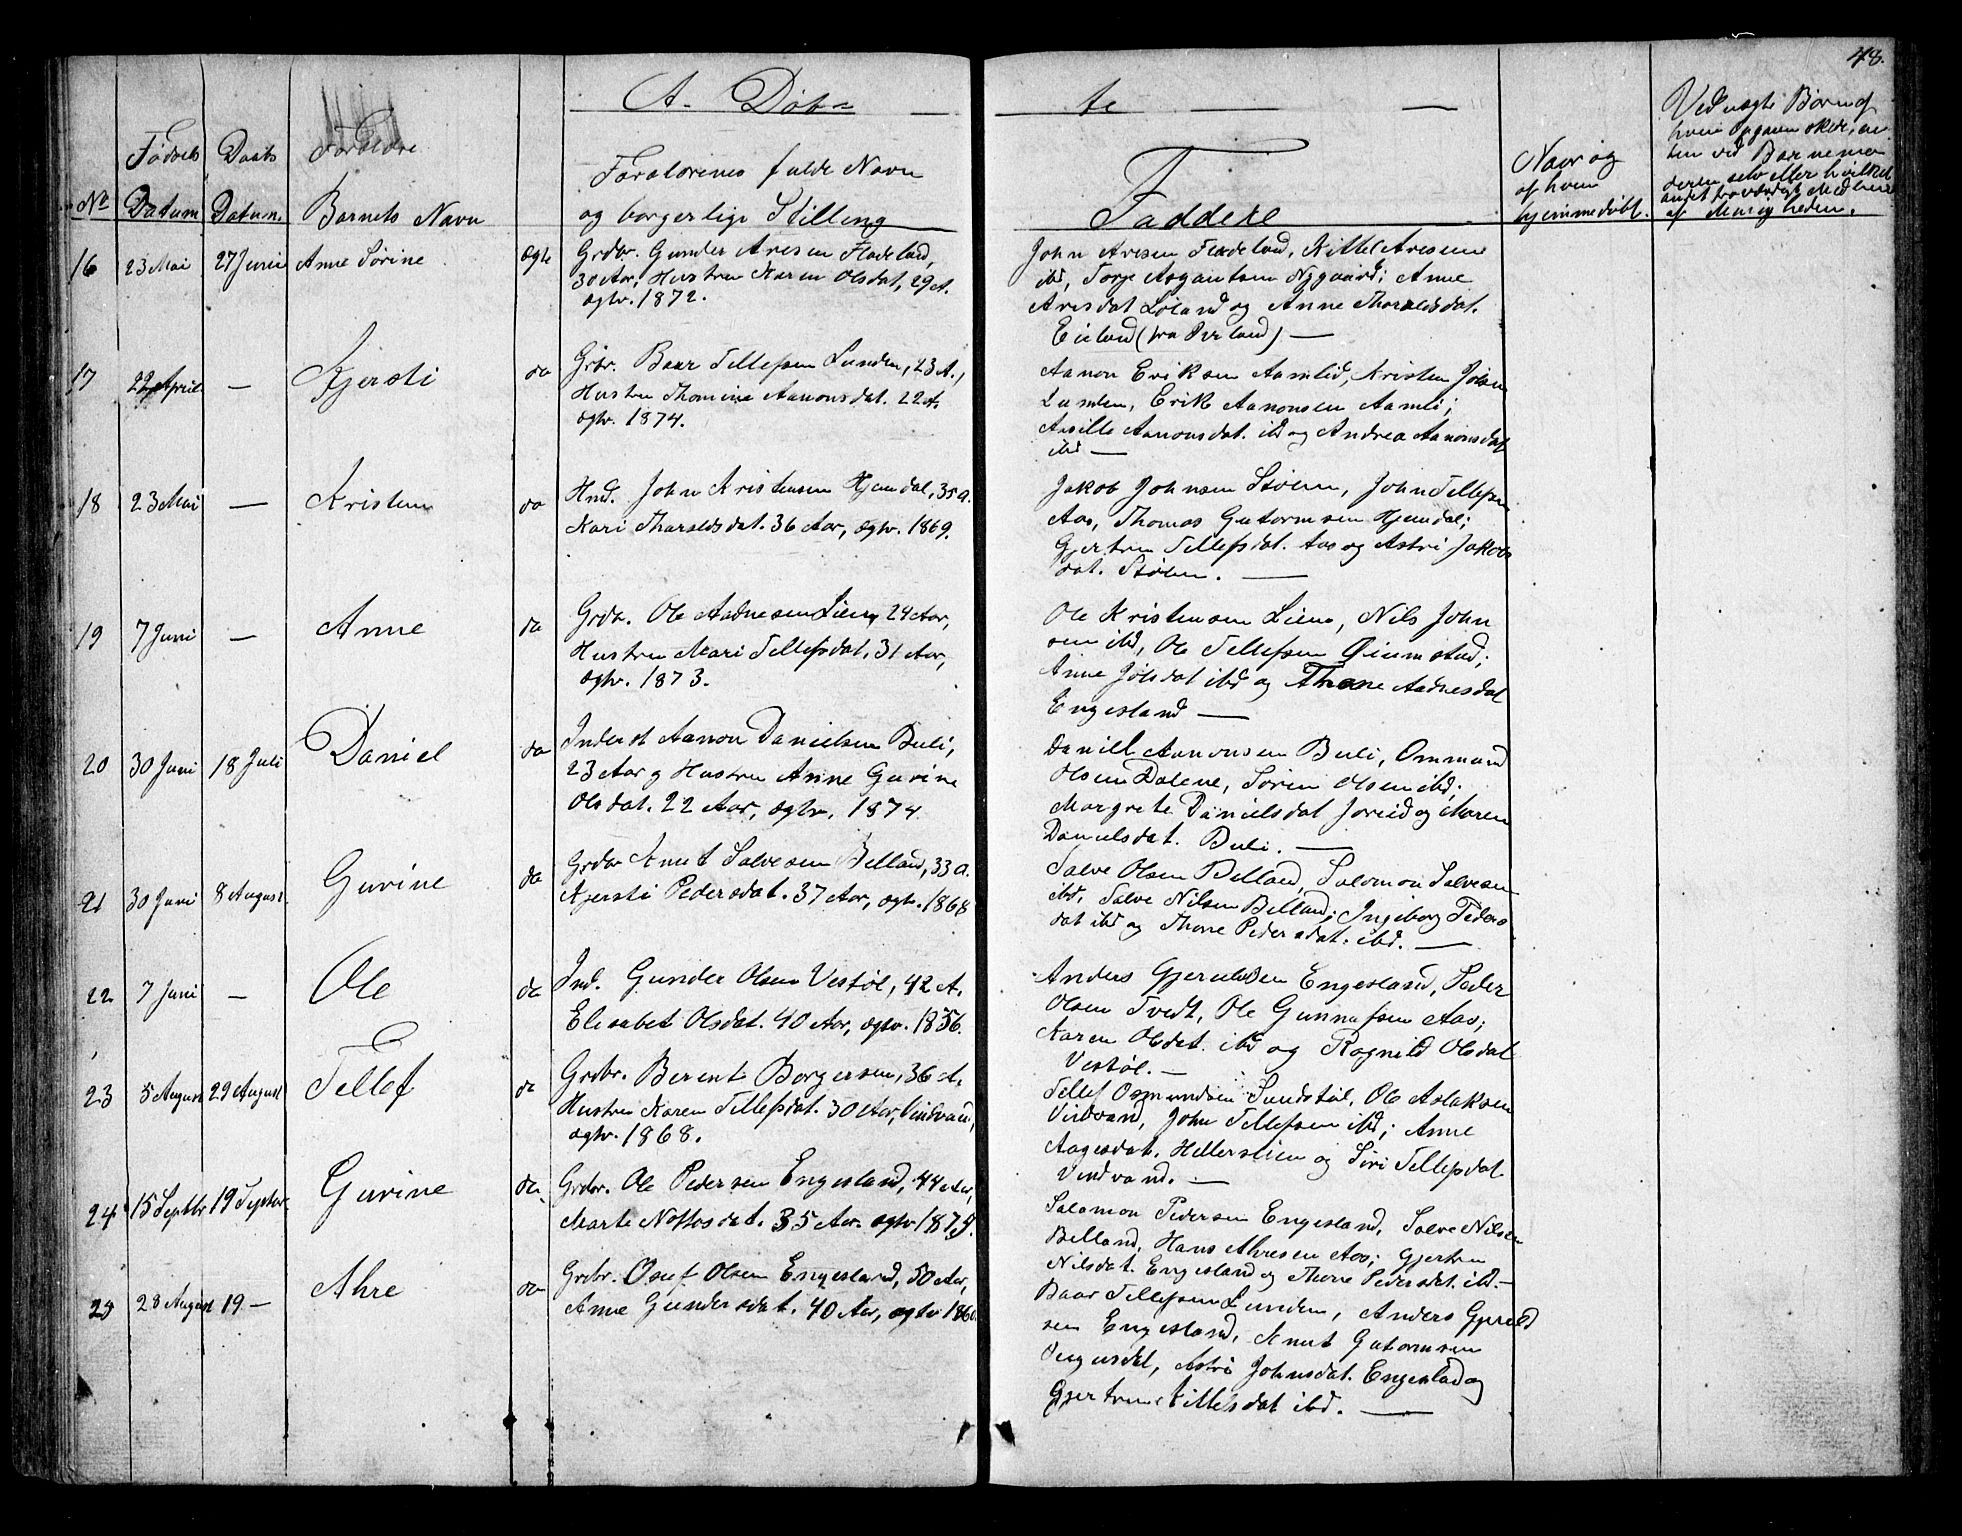 48.
A. Døb-
te
Fødsels
Datum
Daabs
Datum.
Forældre
No
Barnets Navn
Forældrenes fulde Navn
og borgerlige Stilling
Faddere
Naar og
af hvem
hjemmedøbt.
Ved uægte Børn af
hvem Opgaven skede, en-
ten ved Barnemo
deren selv eller hvilket
andet troværdigt Medhold
af
16 23 Mai 27 Juni Anne Sørine ægte
Grdbr. Gunder Aresen Fladeland,
30 Aar, Hustru Karen Olsdat, 29 A.
ægtv. 1872.
John Aresen Fladeland, Kittel Aresen
ibd, Torje Asgautsen Nygaard; Anne
Aresdat Løland og Anne Tharaldsdat.
Eieland (fra Birland) —
17 22 April — Kjersti do
Grbr. Baar Tellefsen Lunden, 23 A.,
Hustru Thomine Aanonsdat. 22 A.
ægtv. 1874.
Aanon Eriksen Aamlid, Kristen Johsn
Lunden, Erik Aanonsen Aamli;
Aasille Aanonsdat. ibd og Andrea Aanonsdat
ibd —
18 23 Mai — Kristen do
Hmd. John Kristensen Hjemdal, 35 A.
Kari Tharaldsdat. 36 Aar, ægtv. 1869.
Jakob Johnsen Støen, John Tellefsen
Aas, Thomas Gutormsen Hjemdal;
Gjertru Tellefsdat. Aas og Astri Jakobs
dat. Støen. —
19 7 Juni — Anne do
Grdbr. Ole Aadnesen Liene, 24 Aar,
Hustru Mari Tellefsdat, 31 Aar,
ægtv. 1873.
Ole Kristensen Liene, Nils John
sen ibd, Ole Tellefsen Øiumstad;
Anne Johsdat ibd og Thone Aadnesdat
Engesland —
20 30 Juni 18 Juli Daniel do
Inderst Aanon Danielsen Buli,
23 Aar og Hustru Anne Gurine
Olsdat. 22 Aar, ægtv. 1874
Daniel Aanonsen Buli, Ommund
Olsen Dalene, Søren Olsen ibd;
Margrete Danielsdat Joreid og Maren
Danielsdat. Buli. —
21 30 Juni 8 August Gurine do
Grdbr Knut Salvesen Belland, 33 A.
Kjersti Pedersdat. 37 Aar, ægtv. 1868
Salve Olsen Belland, Salomon Salvesen
ibd, Salve Nilsen Belland; Ingeborg Peders
dat ibd og Thone Pedersdat. ibd. —
22 7 Juni — Ole do
Ind. Gunder Olsen Vestøl, 42 A.
Elisabet Olsdat. 40 Aar, ægtv. 1856.
Anders Gjeruldsen Engesland, Peder
Olsen Tvedt, Ole Gunnufsen Aas;
Karen Olsdat. ibd og Ragnild Olsdat
Vestøl. —
23 5 August 29 August Tellef do
Grdbr. Berent Borgersen, 36 A.
Hustru Karen Tellefsdat. 30 Aar, Vindvand,
ægtv. 1868.
Tellef Osmundsen Sundstøl, Ole Aslaksen
Vindvand, John Tellefsen ibd; Anne
Aagesdat. Hellerslien og Siri Tellefsdat
Vindvand. —
24 15 Septbr 19 Septbr Gurine do
Grdbr. Ole Pedersen Engesland, 44 Aar,
Marte Nottosdat. 35 Aar. ægtv 1875.
Salomon Pedersen Engesland, Salve Nilsen
Belland, Hans Ahresen Aas; Gjertru
Nilsdat. Engesland og Thone Pedersdat. ibd. —
25 28 August 19 — Ahre do
Grdbr. Osuf Olsen Engesland, 50 Aar,
Anne Gundersdat. 40 Aar, ægtv 1860
Baar Tellefsen Lunden, Anders Gjeruld
sen Engesland, Knut Gutormsen
Astri Johnsdat. Engesland og
Gjertru Tellefsdat ibd. —